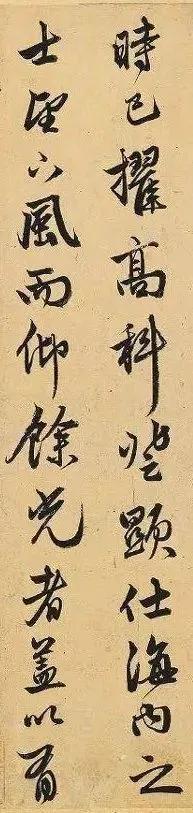 時已擢高科登顯仕海内之
士望下風而仰餘光者蓋以有